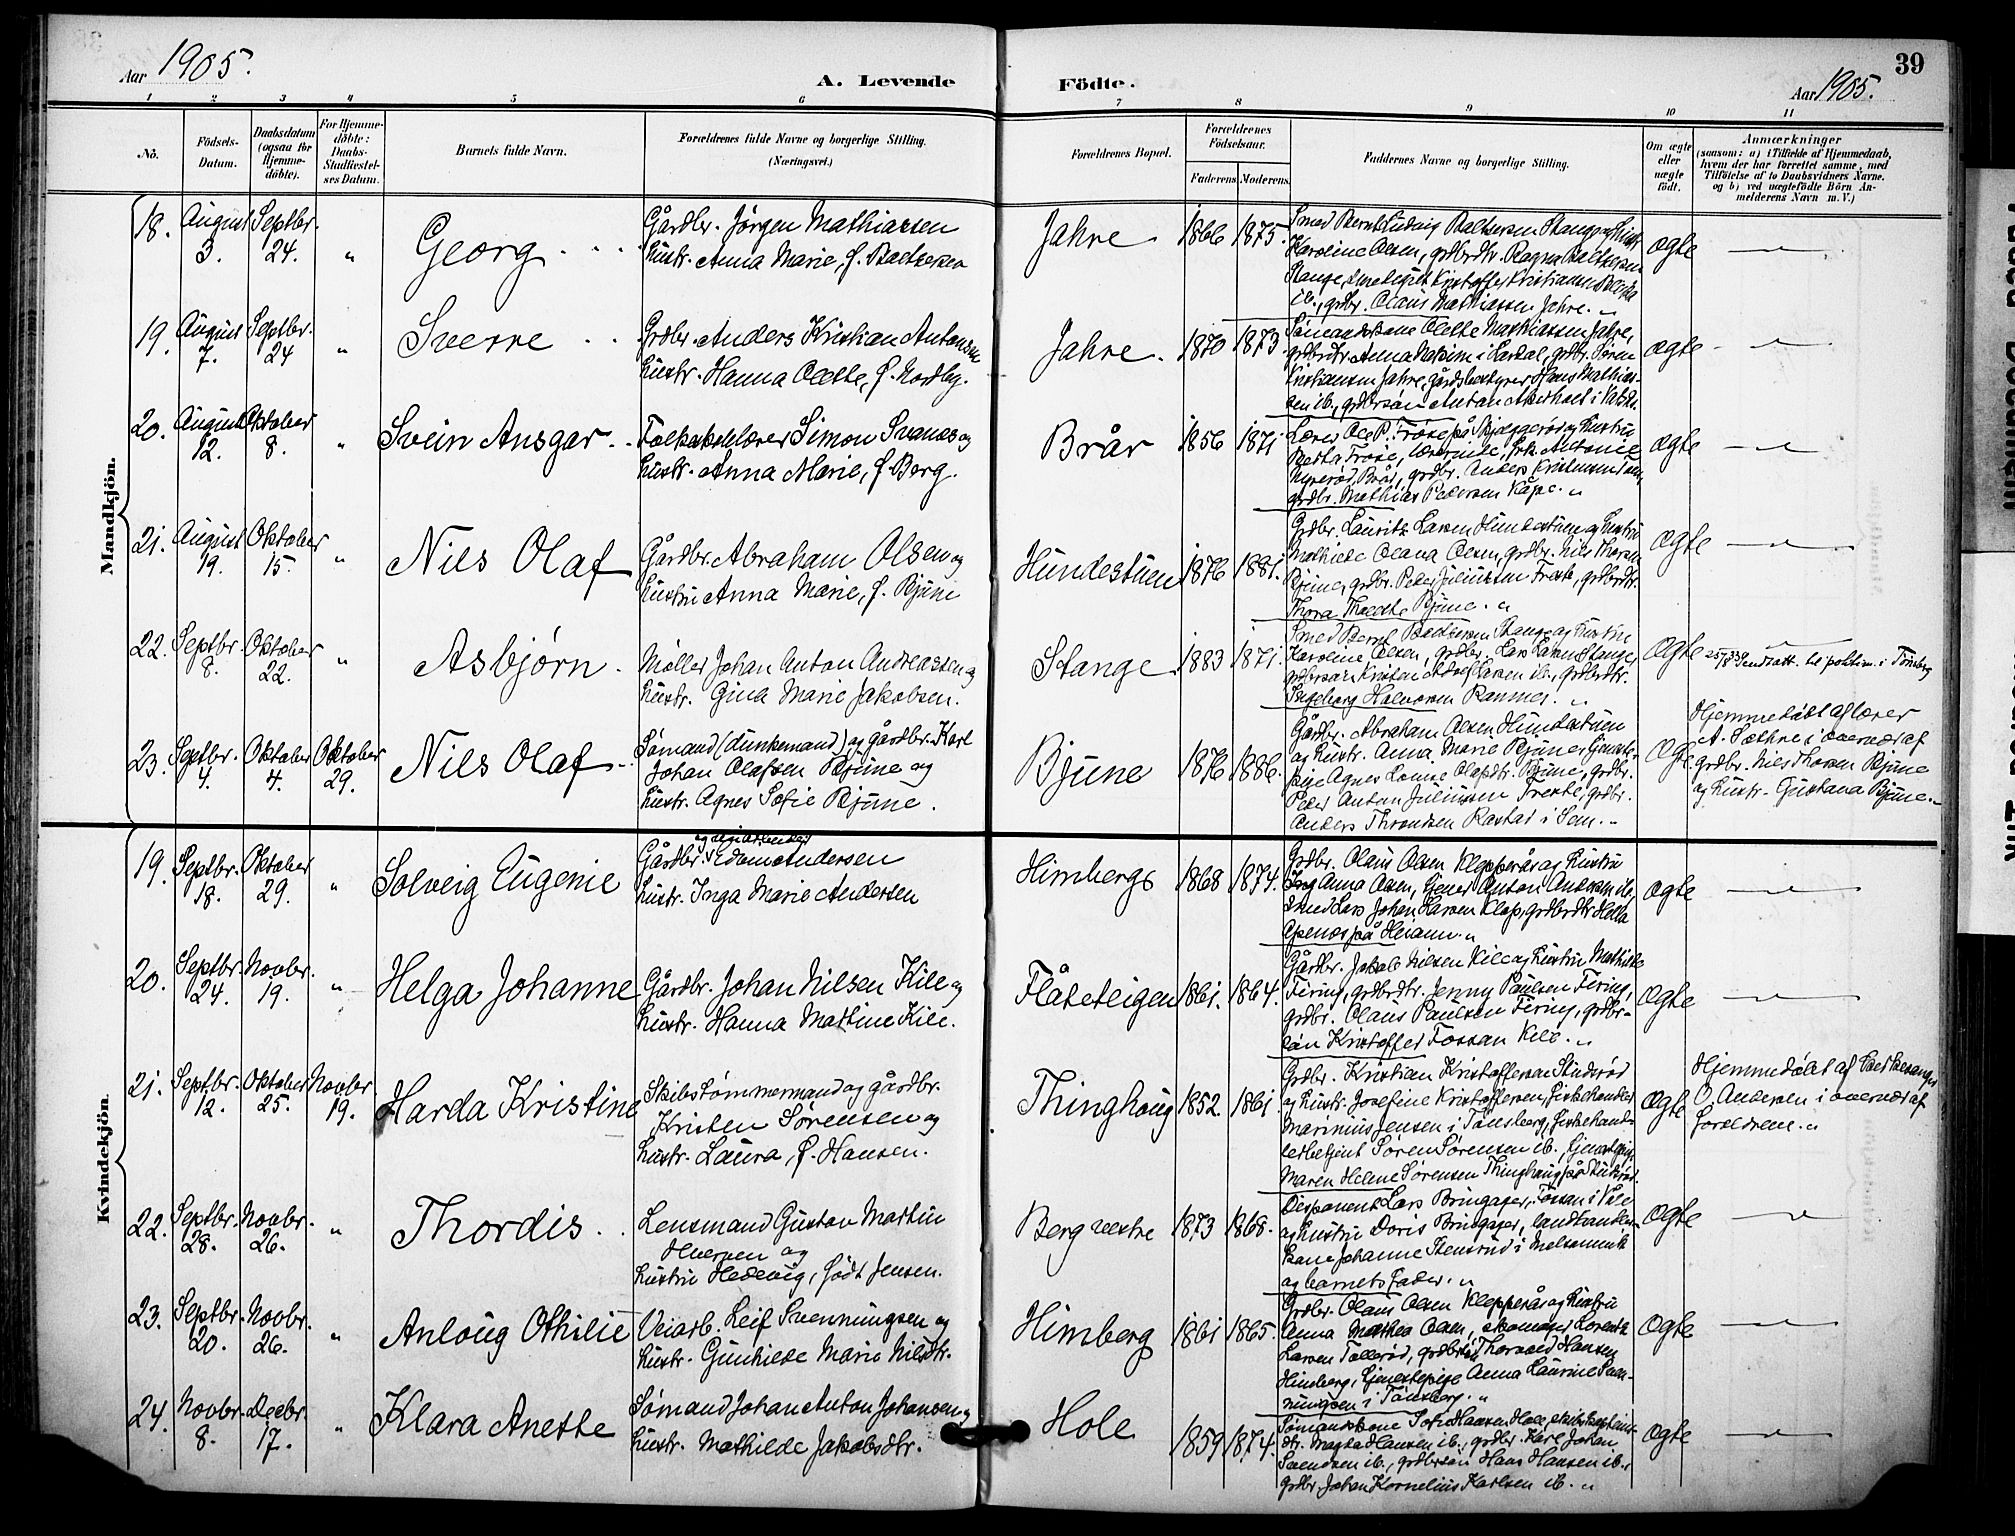 Aar 1905.
A. Levende
Födte.
39
Aar 1905.
1 2 3 4 5 6 7 8 9 10 11
No.
Födsels-Datum.
Daabsdatum (ogsaa for Hjemme-döbte).
For Hjemme-döbte: Daabs-Stadfæstel-ses Datum.
Barnets fulde Navn.
Forældrenes fulde Navne og borgerlige Stilling.
(Næringsvei.)
Forældrenes Bopæl.
Forældrenes Födselsaar.
Faderens. Moderens.
Faddernes Navne og borgerlige Stilling.
Om ægte eller uægte födt.
Anmærkninger
(saasom: a) i Tilfælde af Hjemmedaab,
hvem der har forrettet samme, med
Tilföielse af to Daabsvidners Navne.
og b) ved uægtefödte Börn An-
melderens Navn m. V.)
Mandkjön.
18. August 3. Septbr. 24. " Georg
Gårdbr. Jörgen Mathiassen
hustr. Anna Marie, f. Baltsersen
Jahre 1866 1875.
Smed Bernt Ludvig Baltsersen Stange og hustr.
Karoline Olsen, grdbrdtr. Ragna Baltsersen
Stange, Kristoffer Kristiansen
ib., grdbr. Olaus Mathiassen Jahre. "
ægte
19. August 7. Septbr. 24 " Sverre
Grdbr. Anders Kristian Antonsen
hustr. Hanna Olette, f. Nordby.
Jahre. 1870 1873
Sömandskone Olette Mathiassen Jahre,
grdbrdtr. Anna i Lardal, grdbr. Sören
Kristiansen Jahre, gårdsbestyrer Hans Mathias-
sen ib., grdbrsön Anton Akerholt i
ægte
20. August 12. Oktober 8. " Svein Ansgar
Folkeskolelærer Simon Svanes og
hustr. Anna Marie, f. Berg.
Brår 1856 1871
Lærer Ole P. Tröse på Skjæggeröd og hustru
Tröse, lærerinde, frk. Antonie
Nyreröd, Brår, grdbr. Anders Kristensen
grdbr. Mathias Pedersen Kåpe. "
ægte
21. August 19. Oktober 15. " Nils Olaf
Gårdbr. Abraham Olsen og
hustru Anna Marie, f. Bjune
Hundestuen 1876 1881.
Grdbr. Lauritz Larsen Hundestuen og hustru
Mathilde Olava Olsen, grdbr. Nils Thorsen
Bjune, grdbr. Peder Juliussen Freste, grdbrdtr.
Thora Bjune. "
ægte
22. Septbr. 8. Oktober 22. " Asbjørn
Møller Johan Anton Andreassen og
hustr. Gina Marie Jakobsen.
Stange 1883 1871.
Smed Bernt Baltsersen Stange og hustru
Karoline Olsen, grdbr. Lars Larsen Stange,
grdbrsön Kristen Adolf Larsen ib., grdbrdtr.
Ingeborg Halvorsen Ramnes. "
ægte
Sendt att. til politim. i Tönsberg
23. Septbr. 4. Oktober 4. Oktober 29. Nils Olaf
Sömand (dunkemand) og gårdbr. Karl
Johan Olafsen Bjune og
hustr. Agnes Sofie Bjune.
Bjune 1876 1886.
Gårdbr. Abraham Olsen Hundestuen
og hustr. Anna Marie Bjune, tjeneste-
pige Agnes Lovise Olafsdtr. Bjune, grdbr.
Peder Anton Juliussen Freste, grdbr.
Anders Throndsen Rastad i Sem. "
ægte
Hjemmedöbt af lærer
A. Sæthre i overvær af
grdbr. Nils Thorsen Bjune
og hustr. Gustava Bjune. "
Kvindekjön.
19. Septbr. 18. Oktober 29. " Solveig Eugenie
Gårdbr. Edvin Andersen
hustr. Inga Marie Andersen
Himberg 1868 1874.
Grdbr. Olaus Olsen Klepperås og hustru
Anna Olsen, tjener Anton Andersen ib.,
smed Lars Johan Larsen Klop, grdbrdtr. Helka
Apenes på Heiann. "
ægte
20. Septbr. 24. Novbr. 19. " Helga Johanne
Gårdbr. Johan Nilsen Kile og
hustr. Hanna Martine Kile.
Flåteteigen 1861. 1864.
Gårdbr. Jakob Nilsen Kile og hustru Mathilde
Firing, grdbrdtr. Jenny Paulsen Firing,
grdbr. Olaus Paulsen Firing, grdbr-
sön Kristoffer Fossan Kile. "
ægte
21. Septbr. 12. Oktober 25. Novbr. 19. Harda Kristine
Skibstömmermand og gårdbr.
Kristen Sørensen og
hustr. Laura, f. Hansen.
Thinghoug 1852 1861
Grdbr. Kristian Kristoffersen Stuberöd
og hustr. Josefine Kristoffersen, fiskehandler
Marinius Jensen i Tönsberg, fiskehand-
lerbetjent Sören Sörensen ib., tjenestepige
Maren Helene Sörensen Thinghoug på
ægte
Hjemmedöbt af Kirkesanger
O. Andersen i overvær af
forældrene. "
22. Septbr. 28. Novbr. 26. " Thordis
Lensmand Gustav Martin
Iversen og
hustru Hedevig, født Jensen.
Berg vestre 1873 1868.
Disponent Lars Bringager, Fossan i Vale
og hustru Doris Bringager, landhandler-
kone Johanne Stensrud i Melsomvik
og barnets fader. "
ægte
23. Septbr. 20. Novbr. 26. " Anloug Othilie
Veiarb. Leif Svenningsen og
hustr. Gunhilde Marie Nilsdtr.
Himberg 1861 1865.
Grdbr. Olaus Olsen Klepperås og hustru
Anna Mathea Olsen, skomager Lorents
Larsen Tolleröd, grdbrsön Thorvald Hansen
Himberg, tjenestepige Anna Laurine Sven-
ningsen i Tönsberg. "
ægte
24. Novbr. 8. Decbr. 17. " Klara Anette
Sömand Johan Anton Johansen og
hustr. Mathilde Jakobsdtr.
Hole 1859 1874.
Sömandskone Sofie Hansen Hole,
dtr. Magda Hansen ib., grdbr. Karl Johan
Svendsen ib., grdbrsön Hans Hansen ib.,
grdbr. Johan Kornelius Karlsen ib. "
ægte